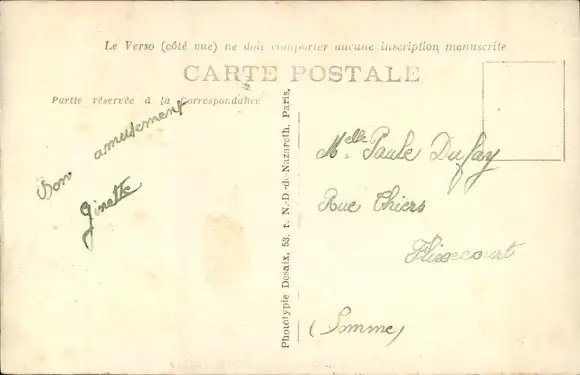 Le Verso (côté vue) ne doit comporter aucune inscription manuscrite
CARTE POSTALE
Partie réservée à la Correspondance
Bon amusement
Ginette
Phototypie Desaix, 53, r. N.-D.-de-Nazareth, Paris.
Melle Paule Dufay
Rue Thiers
Flixecourt
(Somme)